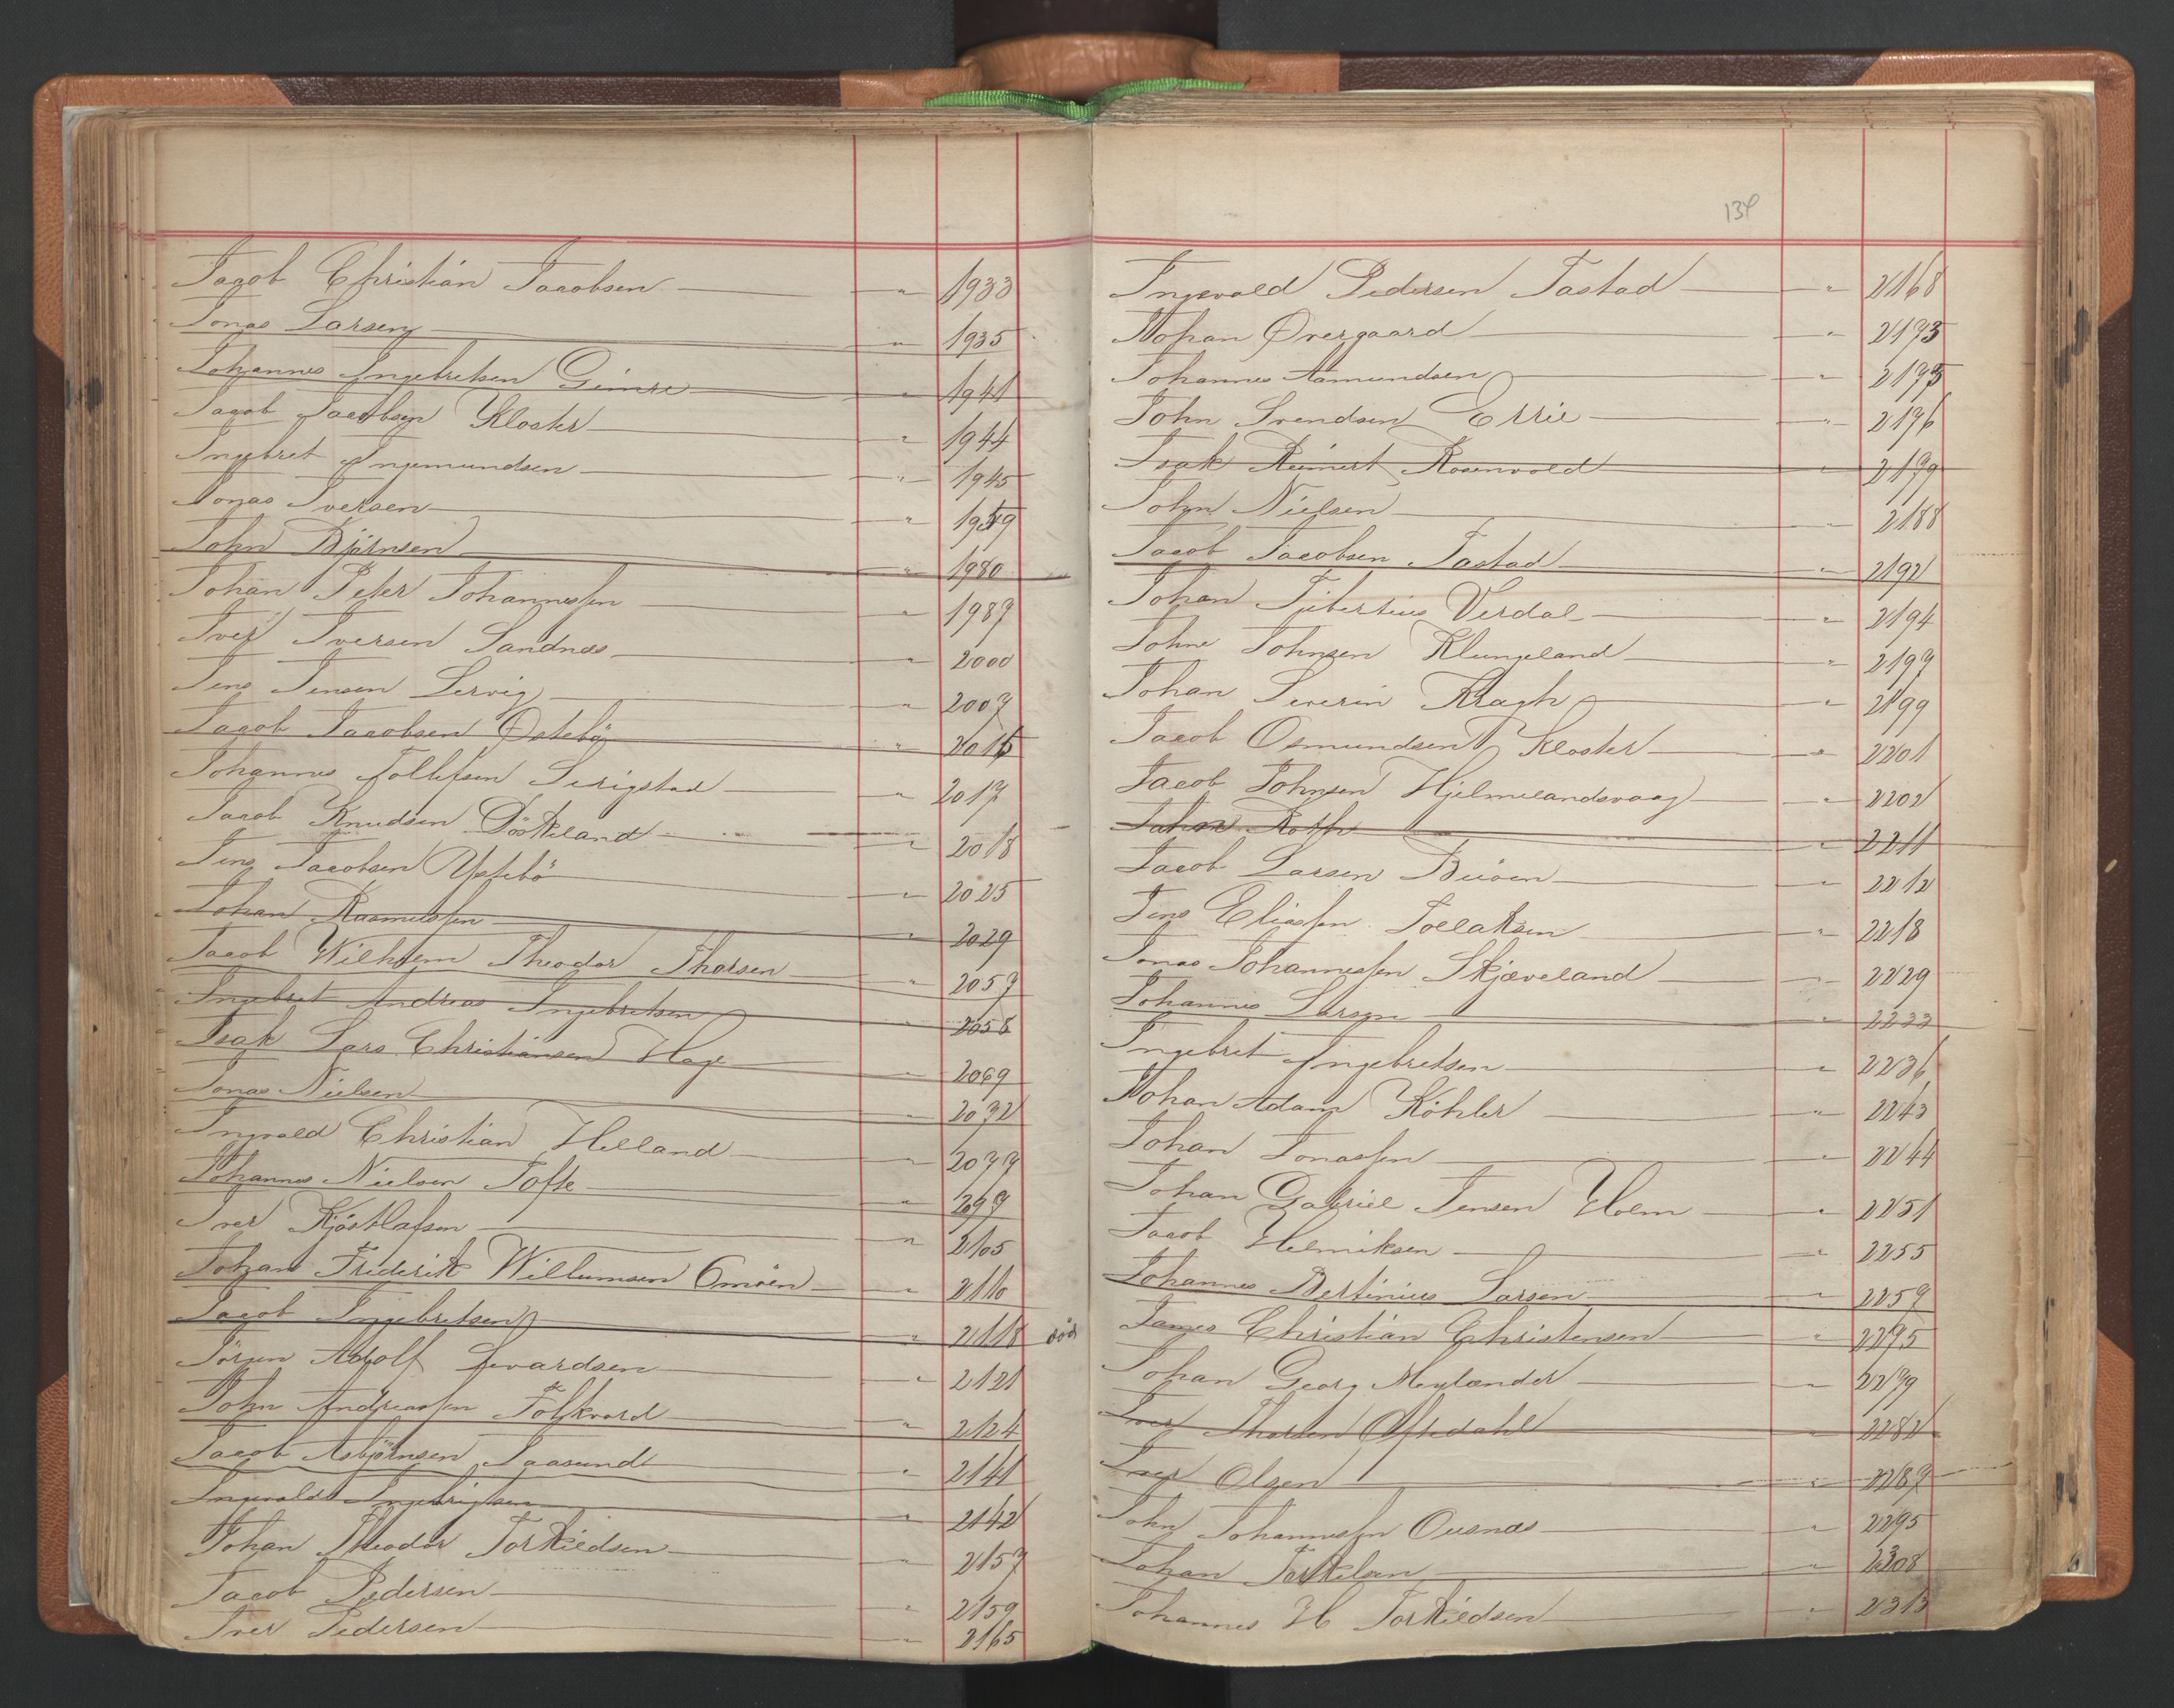 Jacob Christian Jacobsen " 1933
Jonas Larsen " 1935
Johannes Ingebretsen Gimre " 1941
Jacob Jacobsen Kloster " 1944
Ingebret Ingemundsen " 1945
Jonas Iversen " 1959
John Bjørnsen " 1980
Johan Peter Johannessen " 1987
Iver Iversen Sandnæs " 2000
Jens Jensen Lervig " 2007
Jacob Jacobsen Østebö " 2015
Johannes Tollefsen Serigstad " 2017
Jacob Knudsen Döskeland " 2018
Jens Jacobsen Ystebö " 2025
Johan Rasmussen " 2029
Jacob Wilhelm Theodor Thorsen " 2057
Ingebret Andreas Ingebretsen " 2058
Isak Lars Christiansen Hage " 2069
Jonas Nielsen " 2072
Ingvald Christian Helland " 2077
Johannes Nielsen Tofte " 2097
Iver Kjöstlafsen " 2105
Johan Frederik Willumsen Omöen " 2110
Jacob Ingebretsen " 2118 död
Jörgen Adolf Sevardsen " 2121
John Andreassen Folkvord " 2124
Jacob Asbjörnsen Aasund " 2141
Ingvald Ingebrigtsen " 2142
Johan Theodor Torkildsen " 2157
Jacob Pedersen " 2159
Iver Pedersen " 2165
134
Ingvald Pedersen Tastad " 2168
Johan Øvergaard " 2173
Johannes Aamundsen " 2175
John Svendsen Errie " 2176
Isak Reinert Rosenvold " 2179
John Nielsen " 2188
Jacob Jacobsen Tastad " 2192
Johan Tibertius Verdal " 2194
John Johnsen Klungeland " 2197
Johan Severin Kragh " 2199
Jacob Osmundsen Kloster " 2201
Jacob Johnsen Hjelmelandsvaag " 2202
Johan Roth " 2211
Jacob Larsen Buöen " 2212
Jens Eliassen Tollaksen " 2218
Jonas Johannessen Skjæveland " 2229
Johannes Larsen " 2233
Ingebret Ingebretsen " 2236
Johan Adam Köhler " 2243
Johan Jonassen " 2244
Johan Gabriel Jensen Holm " 2251
Jacob Helmiksen " 2255
Johannes Bertinius Larsen " 2259
James Christian Christensen " 2275
Johan Georg Meylander " 2279
Iver Thorsen Oftedahl " 2282
Iver Olsen " 2287
John Johannessen Ousnæs " 2295
Johan Torkilsen " 2308
Johannes H Torkildsen " 2313